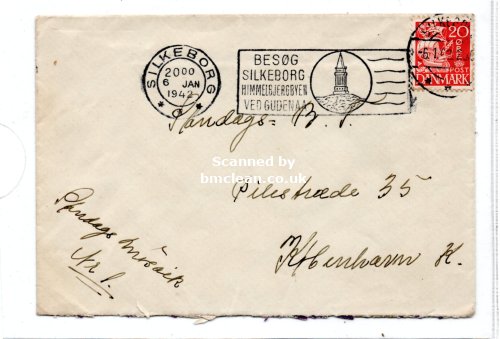 SILKEBORG
2000
6 JAN
1942
BESØG
SILKEBORG
HIMMELBJERGBYEN
VED GUDENAA
20
POST
DANMARK
Scanned by
bmclean.co.uk
Søndags= B. T
Pilestræde 35
København K.
Søndags
Nr 1.